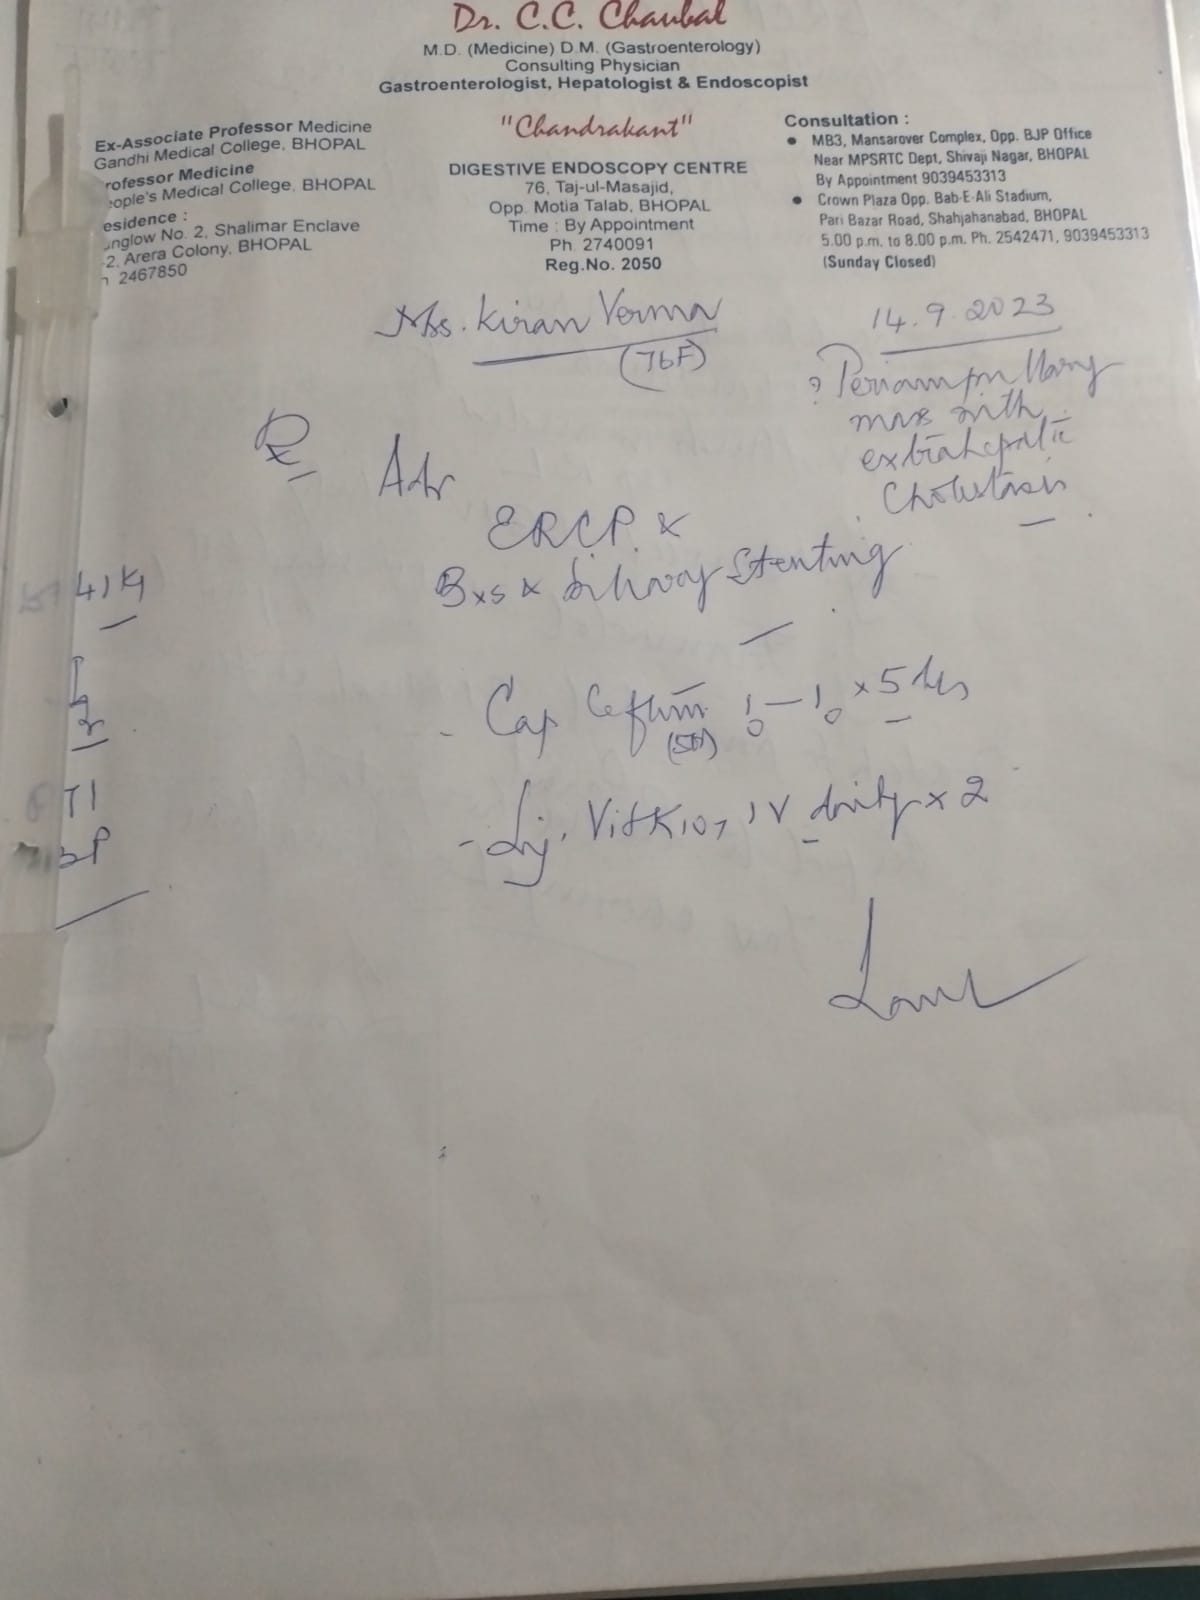 Dr. C.C. Chaubal
M.D. (Medicine) D.M. (Gastroenterology)
Consulting Physician
Gastroenterologist, Hepatologist & Endoscopist
Ex-Associate Professor Medicine
Gandhi Medical College, BHOPAL
rofessor Medicine
eople's Medical College, BHOPAL
esidence :
unglow No. 2, Shalimar Enclave
-2, Arera Colony, BHOPAL
2467850
"Chandrakant"
DIGESTIVE ENDOSCOPY CENTRE
76, Taj-ul-Masajid,
Opp. Motia Talab, BHOPAL
Time : By Appointment
Ph. 2740091
Reg.No. 2050
Consultation :
• MB3, Mansarover Complex, Opp. BJP Office
Near MPSRTC Dept, Shivaji Nagar, BHOPAL
By Appointment 9039453313
• Crown Plaza Opp. Bab-E-Ali Stadium,
Pari Bazar Road, Shahjahanabad, BHOPAL
5.00 p.m. to 8.00 p.m. Ph. 2542471, 9039453313
(Sunday Closed)
Mrs. Kiran Verma
(76F)
14.9.2023
? Periampullary
mass with
extrahepatic
Cholestasis
Rx
Adv
ERCP &
Bxs & biliary Stenting
- Cap
x 5
- Inj. Vit K 10 IV daily x 2